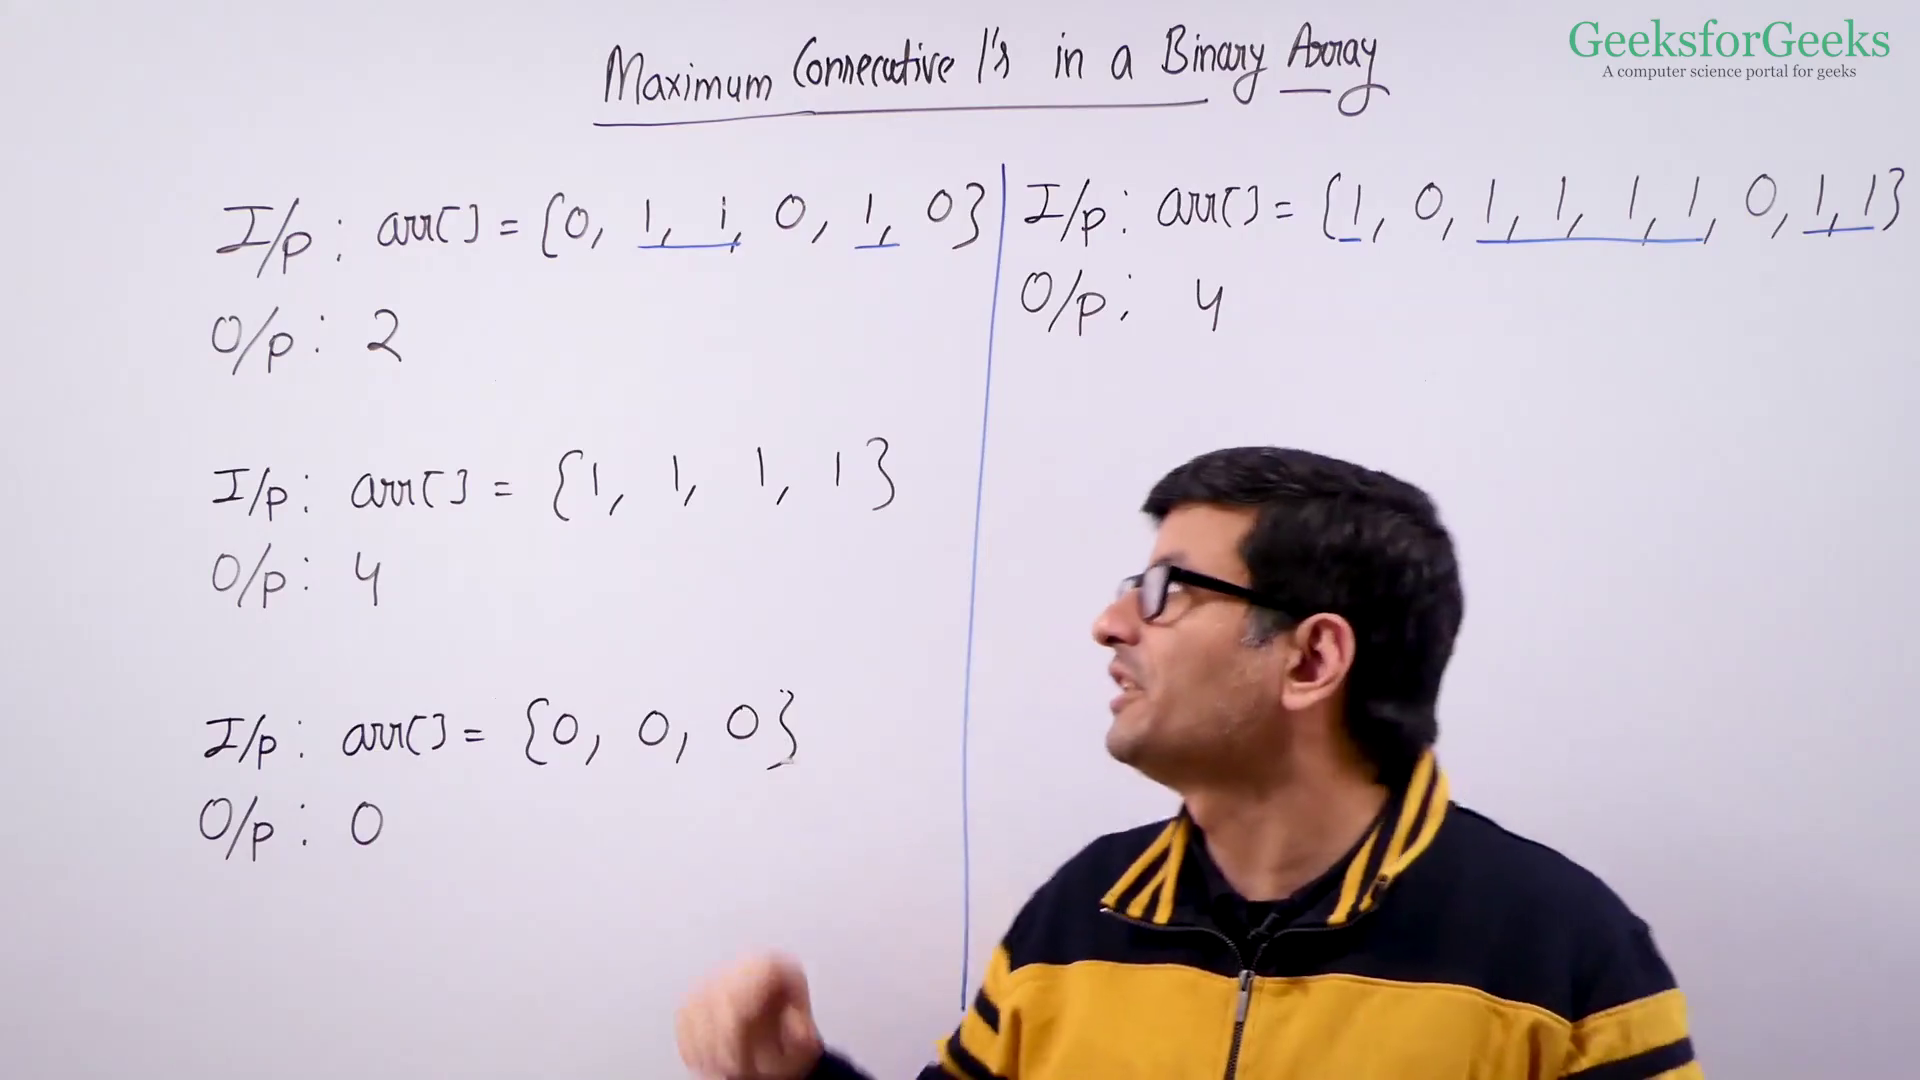 GeeksforGeeks
A computer science portal for geeks
Maximum Consecutive 1's in a Binary Array
I/p : arr[] = {0, 1, 1, 0, 1, 0}
O/p : 2
I/p : arr[] = {1, 1, 1, 1}
O/p : 4
I/p : arr[] = {0, 0, 0}
O/p : 0
I/p : arr[] = {1, 0, 1, 1, 1, 1, 0, 1, 1}
O/p : 4